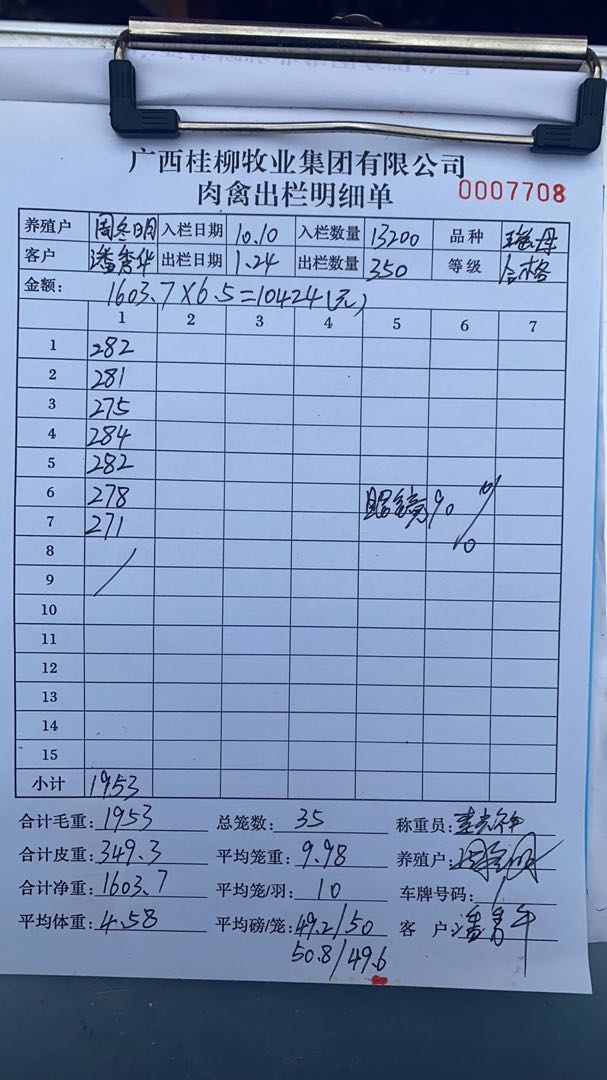 广西桂柳牧业集团有限公司
肉禽出栏明细单 0007708
养殖户 周冬明 入栏日期 10.10 入栏数量 13200 品种 瑶丹
客户 潘秀华 出栏日期 1.24 出栏数量 350 等级 合格
金额: 1603.7×6.5=10424(元)
1 2 3 4 5 6 7
1 282
2 281
3 275
4 284
5 282
6 278
7 271
8
9
10
11
12
13
14
15
小计 1953
合计毛重: 1953 总笼数: 35 称重员:
合计皮重: 349.3 平均笼重: 9.98 养殖户:
合计净重: 1603.7 平均笼/羽: 10 车牌号码:
平均体重: 4.58 平均磅/笼: 49.2/50 客 户:
50.8/49.6